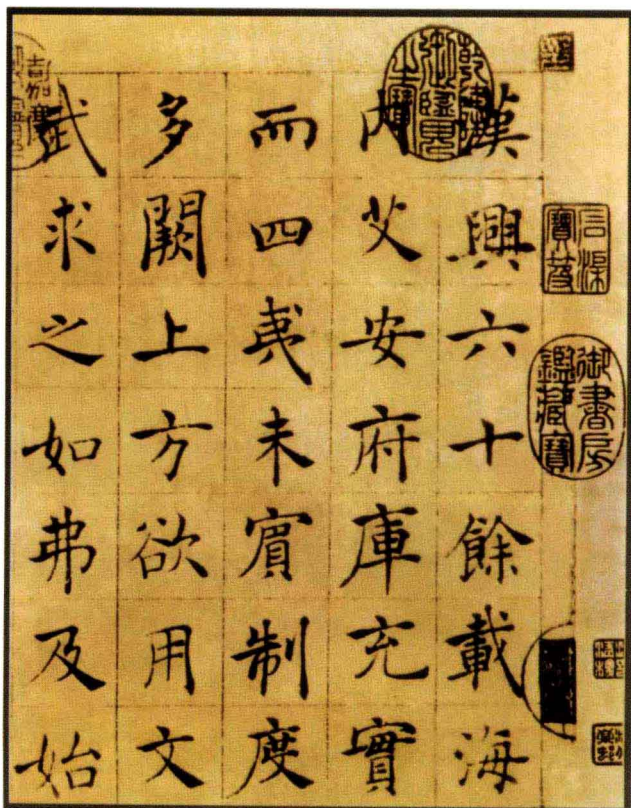 石渠寶笈
御書房鑑藏寶
乾隆御覽之寶
漢興六十餘載海
內艾安府庫充實
而四夷未賓制度
多闕上方欲用文
武求之如弗及始
嘉慶